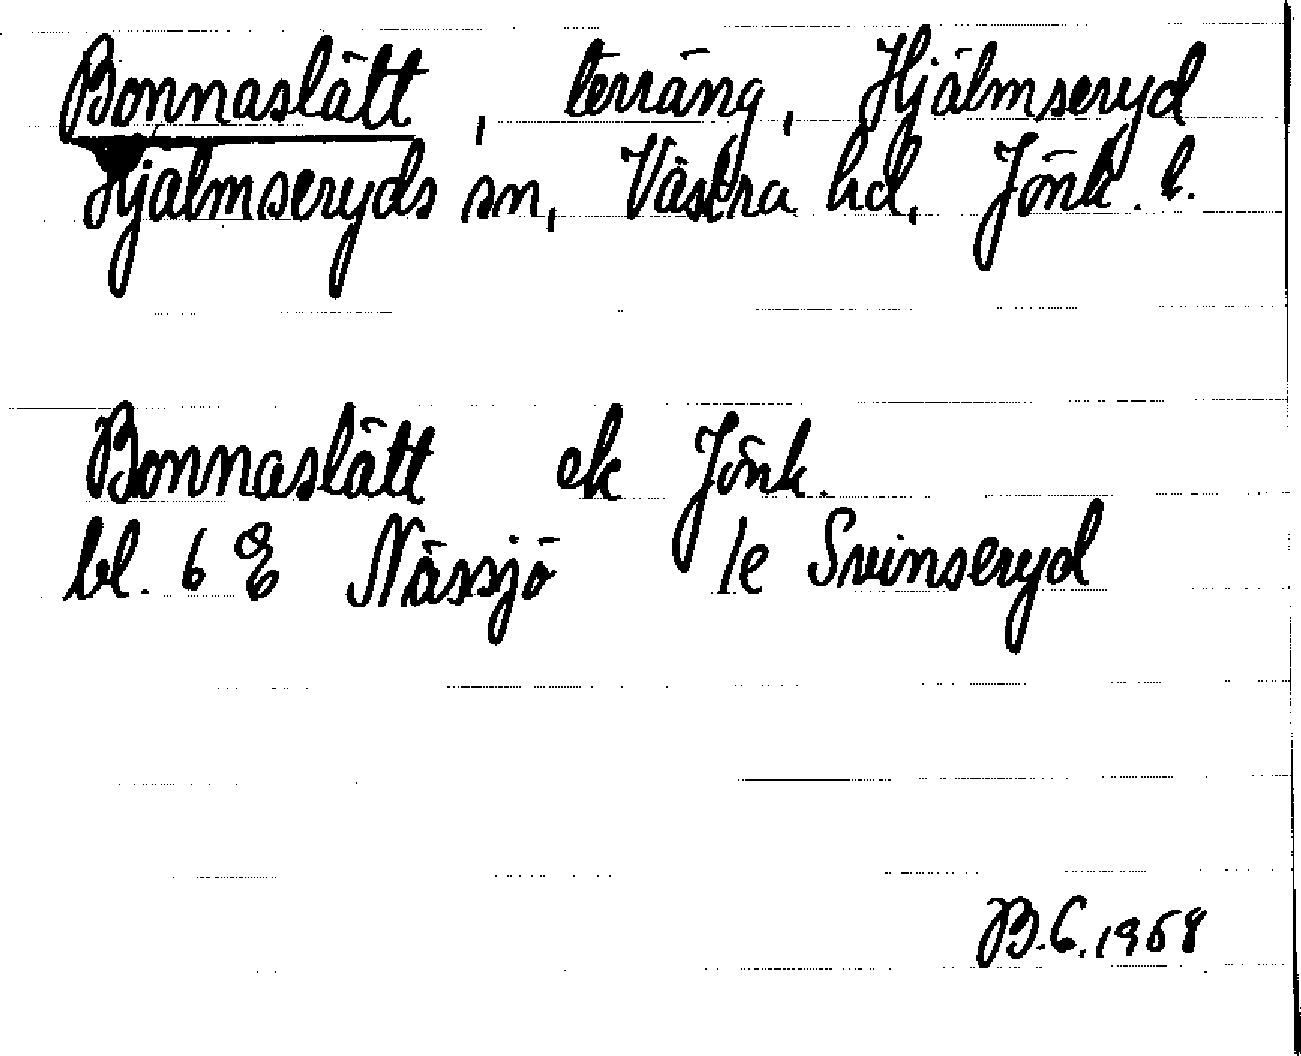 Bonnaslätt, terräng, Hjälmseryd
Hjälmseryds sn, Västra hd, Jönk. l.
Bonnaslätt ek Jönk.
bl. 6 E Nässjö 1e Svinseryd
B.C. 1968